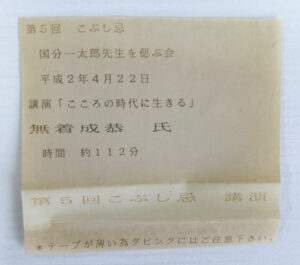 第5回　こぶし忌
国分一太郎先生を偲ぶ会
平成2年4月22日
講演「こころの時代に生きる」
無着成恭　氏
時間　約112分
第5回こぶし忌　講演
＊テープが薄い為ダビングにはご注意下さい。